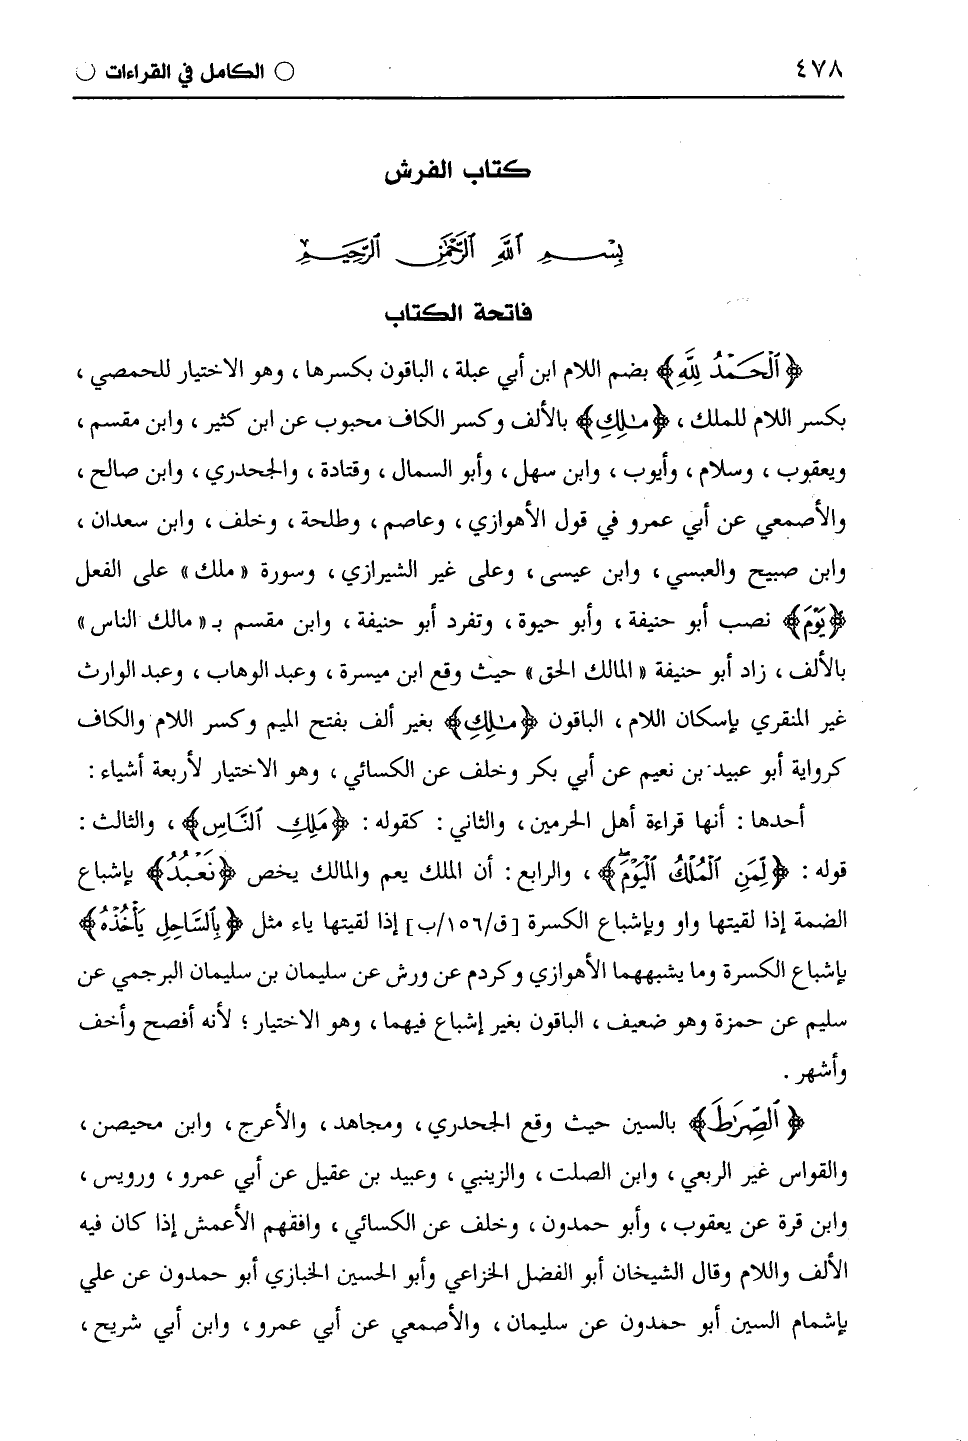 ٤٧٨
○ الكامل في القراءات ○
كتاب الفرش
بِسْمِ ٱللَّهِ ٱلرَّحْمَٰنِ ٱلرَّحِيمِ
فاتحة الكتاب
﴿ٱلْحَمْدُ لِلَّهِ﴾ بضم اللام ابن أبي عبلة ، الباقون بكسرها ، وهو الاختيار للحمصي ،
بكسر اللام للملك ، ﴿مَٰلِكِ﴾ بالألف وكسر الكاف محبوب عن ابن كثير ، وابن مقسم ،
ويعقوب ، وسلام ، وأيوب ، وابن سهل ، وأبو السمال ، وقتادة ، والجحدري ، وابن صالح ،
والأصمعي عن أبي عمرو في قول الأهوازي ، وعاصم ، وطلحة ، وخلف ، وابن سعدان ،
وابن صبيح والعبسي ، وابن عيسى ، وعلى غير الشيرازي ، وسورة « ملك » على الفعل
﴿يَوْمَ﴾ نصب أبو حنيفة ، وأبو حيوة ، وتفرد أبو حنيفة ، وابن مقسم بـ « مالك الناس »
بالألف ، زاد أبو حنيفة « المالك الحق » حيث وقع ابن ميسرة ، وعبد الوهاب ، وعبد الوارث
غير المنقري بإسكان اللام ، الباقون ﴿مَٰلِكِ﴾ بغير ألف بفتح الميم وكسر اللام والكاف
كرواية أبو عبيد بن نعيم عن أبي بكر وخلف عن الكسائي ، وهو الاختيار لأربعة أشياء :
أحدها : أنها قراءة أهل الحرمين ، والثاني : كقوله : ﴿مَلِكِ ٱلنَّاسِ﴾ ، والثالث :
قوله : ﴿لِّمَنِ ٱلْمُلْكُ ٱلْيَوْمَۖ﴾ ، والرابع : أن الملك يعم والمالك يخص ﴿نَعْبُدُ﴾ بإشباع
الضمة إذا لقيتها واو وبإشباع الكسرة [ق/١٥٦/ب] إذا لقيتها ياء مثل ﴿بِٱلسَّاحِلِ يَأْخُذْهُ﴾
بإشباع الكسرة وما يشبههما الأهوازي وكردم عن ورش عن سليمان بن سليمان البرجمي عن
سليم عن حمزة وهو ضعيف ، الباقون بغير إشباع فيهما ، وهو الاختيار ؛ لأنه أفصح وأخف
وأشهر .
﴿ٱلصِّرَٰطَ﴾ بالسين حيث وقع الجحدري ، ومجاهد ، والأعرج ، وابن محيصن ،
والقواس غير الربعي ، وابن الصلت ، والزينبي ، وعبيد بن عقيل عن أبي عمرو ، ورويس ،
وابن قرة عن يعقوب ، وأبو حمدون ، وخلف عن الكسائي ، وافقهم الأعمش إذا كان فيه
الألف واللام وقال الشيخان أبو الفضل الخزاعي وأبو الحسين الخبازي أبو حمدون عن علي
بإشمام السين أبو حمدون عن سليمان ، والأصمعي عن أبي عمرو ، وابن أبي شريح ،